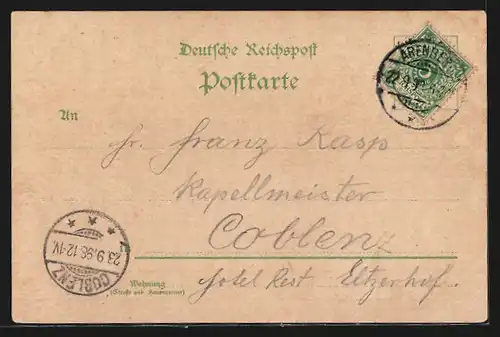 Deutsche Reichspost
Postkarte
An
Hr. Franz Rasp
Kapellmeister
Coblenz
Wohnung
(Straße und Hausnummer)
Hotel Rest Eltzerhof.
23.9.98.12-1V.
COBLENZ